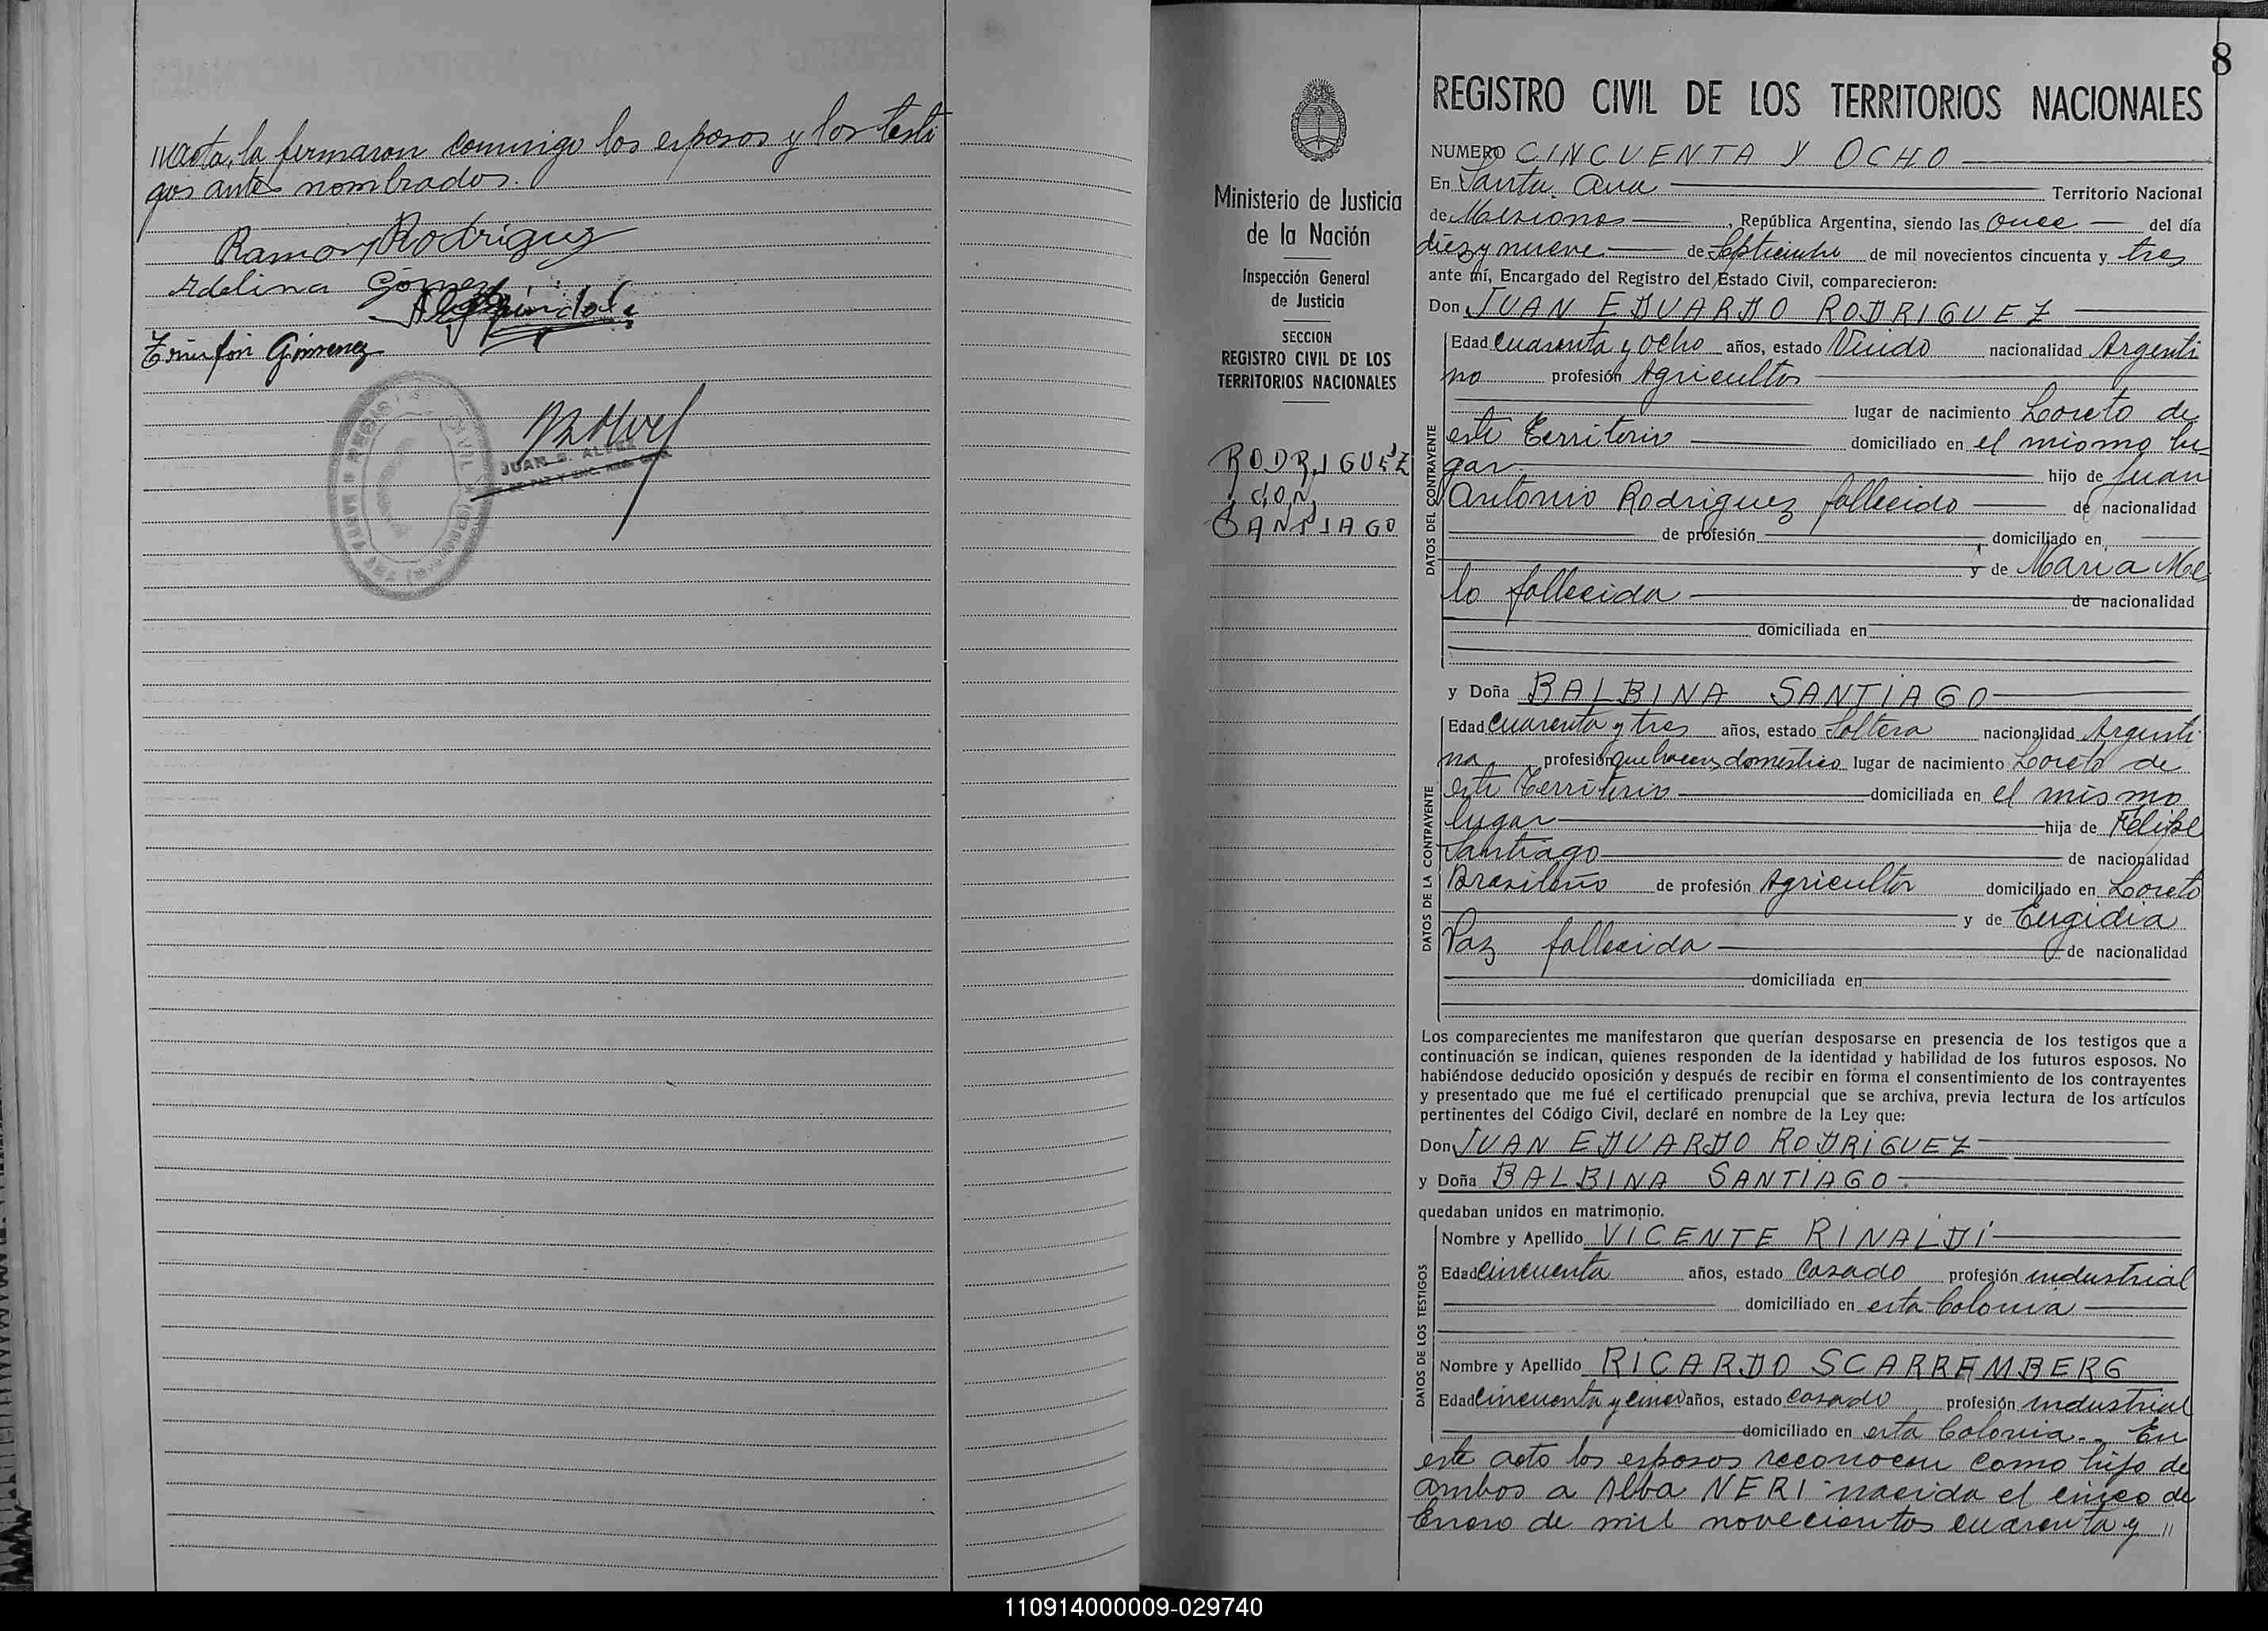 //acta, la firmaron conmigo los esposos y los testi
gos antes nombrados.
Ramon Rodriguez
Adelina Gómez
Gimenez
JUAN B. ALVEZ
8
REGISTRO CIVIL DE LOS TERRITORIOS NACIONALES
Ministerio de Justicia
de la Nación
Inspección General
de Justicia
SECCION
REGISTRO CIVIL DE LOS
TERRITORIOS NACIONALES
RODRIGUEZ
CON
SANTIAGO
NUMERO CINCUENTA Y OCHO
En Santa Ana Territorio Nacional
de Misiones, República Argentina, siendo las once del día
diez y nueve de Septiembre de mil novecientos cincuenta y tres
ante mí, Encargado del Registro del Estado Civil, comparecieron:
Don JUAN EDUARDO RODRIGUEZ
DATOS DEL CONTRAYENTE
Edad cuarenta y ocho años, estado Viudo nacionalidad Argenti
no profesión Agricultor
lugar de nacimiento Loreto de
este Territorio domiciliado en el mismo lu-
gar hijo de Juan
Antonio Rodriguez fallecido de nacionalidad
de profesión domiciliado en
y de Maria Me-
lo fallecida de nacionalidad
domiciliada en
y Doña BALBINA SANTIAGO
DATOS DE LA CONTRAYENTE
Edad cuarenta y tres años, estado Soltera nacionalidad Argenti-
na profesión quehaceres domestico lugar de nacimiento Loreto de
este Territorio domiciliada en el mismo
lugar hija de Felipe
Santiago de nacionalidad
Brasileño de profesión Agricultor domiciliado en Loreto
y de Eugidia
Paz fallecida de nacionalidad
domiciliada en
Los comparecientes me manifestaron que querían desposarse en presencia de los testigos que a
continuación se indican, quienes responden de la identidad y habilidad de los futuros esposos. No
habiéndose deducido oposición y después de recibir en forma el consentimiento de los contrayentes
y presentado que me fué el certificado prenupcial que se archiva, previa lectura de los artículos
pertinentes del Código Civil, declaré en nombre de la Ley que:
Don JUAN EDUARDO RODRIGUEZ
y Doña BALBINA SANTIAGO.
quedaban unidos en matrimonio.
DATOS DE LOS TESTIGOS
Nombre y Apellido VICENTE RINALDI
Edad cincuenta años, estado casado profesión industrial
domiciliado en esta Colonia
Nombre y Apellido RICARDO SCARRAMBERG
Edad cincuenta y cinco años, estado casado profesión industrial
domiciliado en esta Colonia. En
este acto los esposos reconocen como hijo de
ambos a Alba NERI nacida el cinco de
Enero de mil novecientos cuarenta y //
110914000009-029740